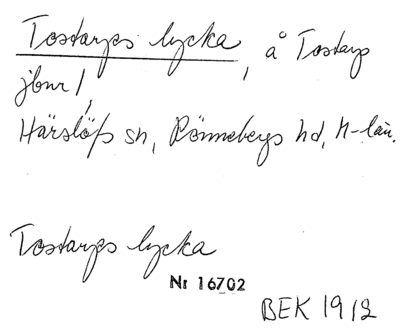 Tostarps lycka, å Tostarp
jbnr 1,
Härslöfs sn, Rönnebergs hd, M-län.
Tostarps lycka
Nr 16702
BEK 1912